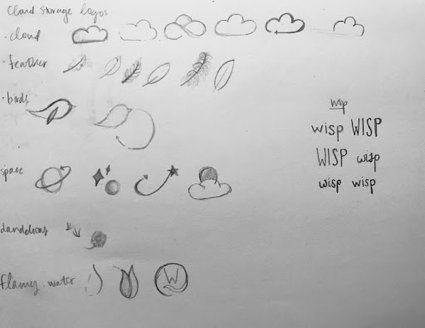 Cloud storage logos
· cloud
· feather
· birds
space
dandelions
flamy water
W
wisp
wisp WISP
WISP wisp
wisp wisp